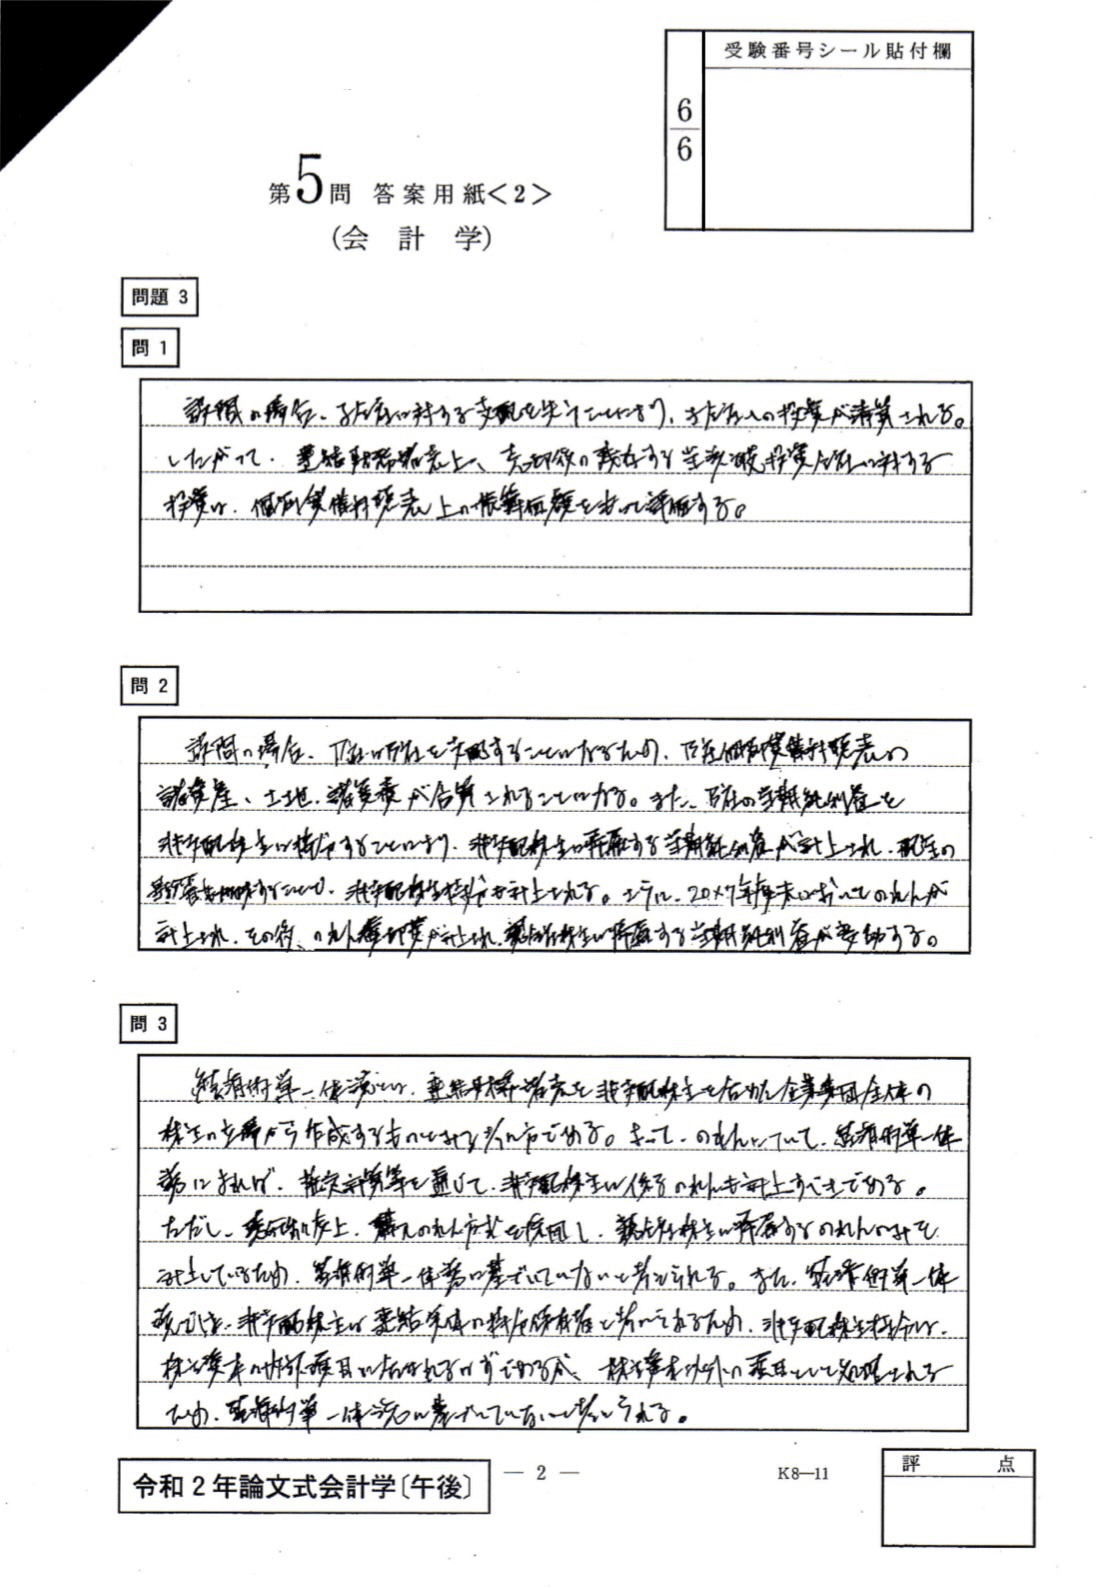 受験番号シール貼付欄
6
6
第5問 答案用紙<2>
(会 計 学)
問題 3
問 1
設問の場合、子会社に対する支配を失うことにより、子会社への投資が清算される。
したがって、連結財務諸表上、売却後の残存する当該被投資会社に対する
投資は、個別貸借対照表上の帳簿価額をもって評価する。
問 2
設問の場合、P社はB社を支配することになるため、B社個別貸借対照表の
諸資産、土地、諸負債が合算されることになる。また、B社の当期純利益を
非支配株主に按分することにより、非支配株主に帰属する当期純利益が計上され、
非支配株主持分も計上される。さらに、20×7年度末においてのれんが
計上され、その後、のれん償却費が計上され、親会社株主に帰属する当期純利益が変動する。
問 3
経済的単一体説とは、連結財務諸表を非支配株主を含めた企業集団全体の
株主の立場から作成するものとみる考え方である。よって、のれんについて、経済的単一体
説によれば、推定計算等を通じて、非支配株主に係るのれんも計上すべきである。
ただし、制度上、購入のれん方式を採用し、親会社株主に帰属するのれんのみを
計上しているため、経済的単一体説に基づいていないと考えられる。また、経済的単一体
説では、非支配株主は連結主体の持分保有者と考えられるため、非支配株主持分は、
株主資本の内訳項目に含められるはずであるが、株主資本以外の項目として処理される
ため、経済的単一体説に基づいていないと考えられる。
令和2年論文式会計学〔午後〕
— 2 —
K8—11
評 点